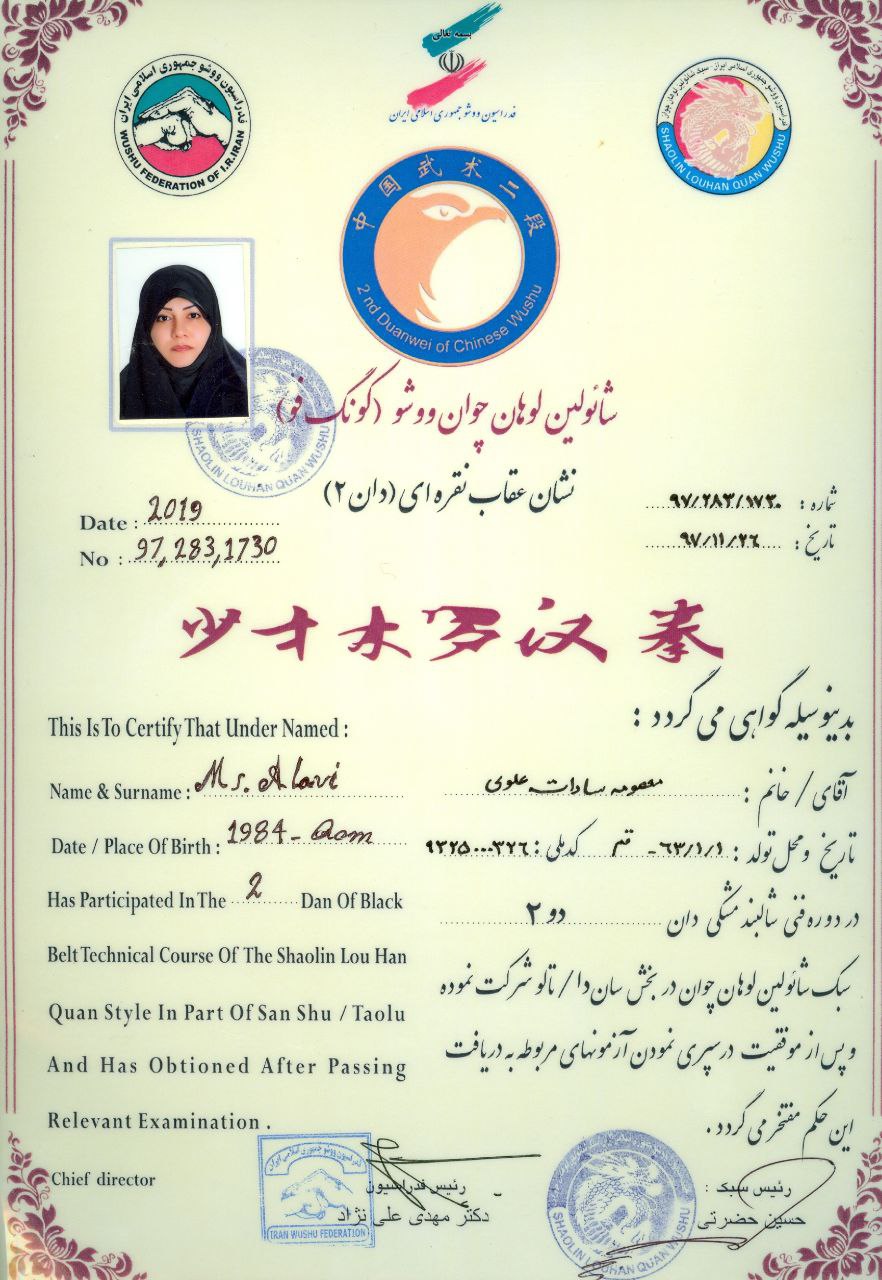 بسمه تعالی
فدراسیون ووشو جمهوری اسلامی ایران
فدراسیون ووشو جمهوری اسلامی ایران
WUSHU FEDERATION OF I.R.IRAN
SHAOLIN LOUHAN QUAN WUSHU
中国武术二段
2 nd Duanwei of Chinese Wushu
شائولین لوهان چوان ووشو (کونگ فو)
SHAOLIN LOUHAN QUAN WUSHU
نشان عقاب نقره ای (دان ۲)
Date : 2019
شماره : ۹۷/۲۸۳/۱۷۳۰
No : 97,283,1730
تاریخ : ۹۷/۱۱/۲۶
少林罗汉拳
This Is To Certify That Under Named :
بدینوسیله گواهی می گردد :
Name & Surname : Ms. Alavi
آقای / خانم : معصومه سادات علوی
Date / Place Of Birth : 1984 - Qom
تاریخ و محل تولد : ۶۳/۱/۱- قم کدملی : ۹۳۲۵۰۰۰۳۲۶
Has Participated In The 2 Dan Of Black
در دوره فنی شالبند مشکی دان دو ۲
Belt Technical Course Of The Shaolin Lou Han
سبک شائولین لوهان چوان در بخش سان دا / تالو شرکت نموده
Quan Style In Part Of San Shu / Taolu
و پس از موفقیت در سپری نمودن آزمونهای مربوطه به دریافت
And Has Obtioned After Passing
Relevant Examination .
این حکم مفتخر می گردد .
Chief director
رئیس فدراسیون
دکتر مهدی علی نژاد
رئیس سبک :
حسین حضرتی
فدراسیون ووشو جمهوری اسلامی ایران
IRAN WUSHU FEDERATION
SHAOLIN LOUHAN QUAN WUSHU